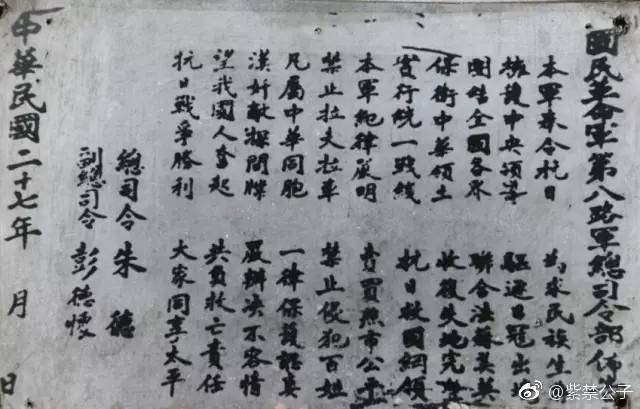 國民革命軍第八路軍總司令部佈
本軍奉令抗日 為求民族生
擁護中央領導 驅逐日寇出
團結全國各界 聯合法蘇美英
保衛中華領土 收復失地完
實行統一戰線 抗日救國綱領
本軍紀律嚴明 賣買照市公平
禁止拉夫拉車 禁止侵犯百姓
凡屬中華同胞 一律保護認真
漢奸敵探間諜 嚴辦決不容情
望我國人奮起 共負救亡責任
抗日戰爭勝利 大家同享太平
總司令 朱德
副總司令 彭德懷
中華民國二十七年 月 日
@紫禁公子